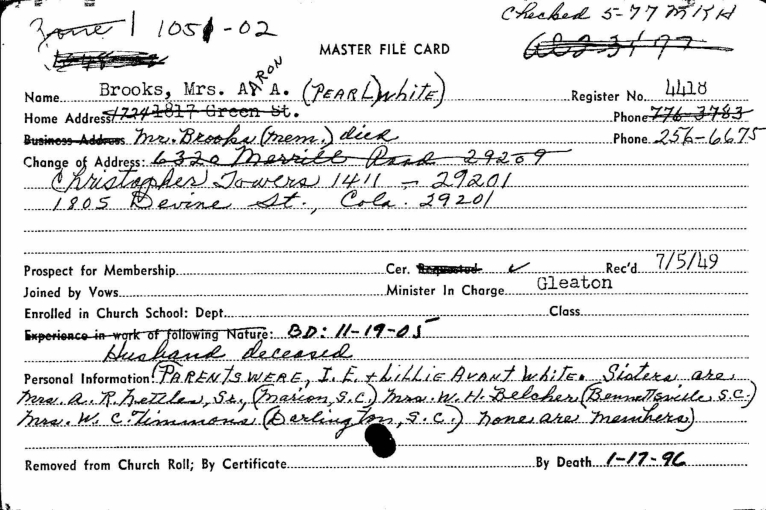 Checked 5-77 MKH
Zone 1 1051-02
MASTER FILE CARD
Name Brooks, Mrs. AARON A. (PEARL White) Register No. 4418
Home Address 1724 1817 Green St. Phone 776-3783
Business Address Mr. Brooks (mem.) died Phone 256-6675
Change of Address: 6320 Merrill Road 29209
Christopher Towers 1411 - 29201
1805 Devine St., Cola. 29201
Prospect for Membership Cer. Requested ✓ Rec'd 7/5/49
Joined by Vows Minister In Charge Gleaton
Enrolled in Church School: Dept. Class
Experience in work of following Nature: BD: 11-19-05
Husband deceased
Personal Information: (PARENTS WERE, I. E. + LILLIE AVANT White. Sisters are
Mrs. A. R. Nettles, Sr., (Marion, S.C.) Mrs. W. H. Belcher (Bennettsville, S.C.)
Mrs. W. C. Timmons (Darlington, S.C.) none are members)
Removed from Church Roll; By Certificate By Death 1-17-96